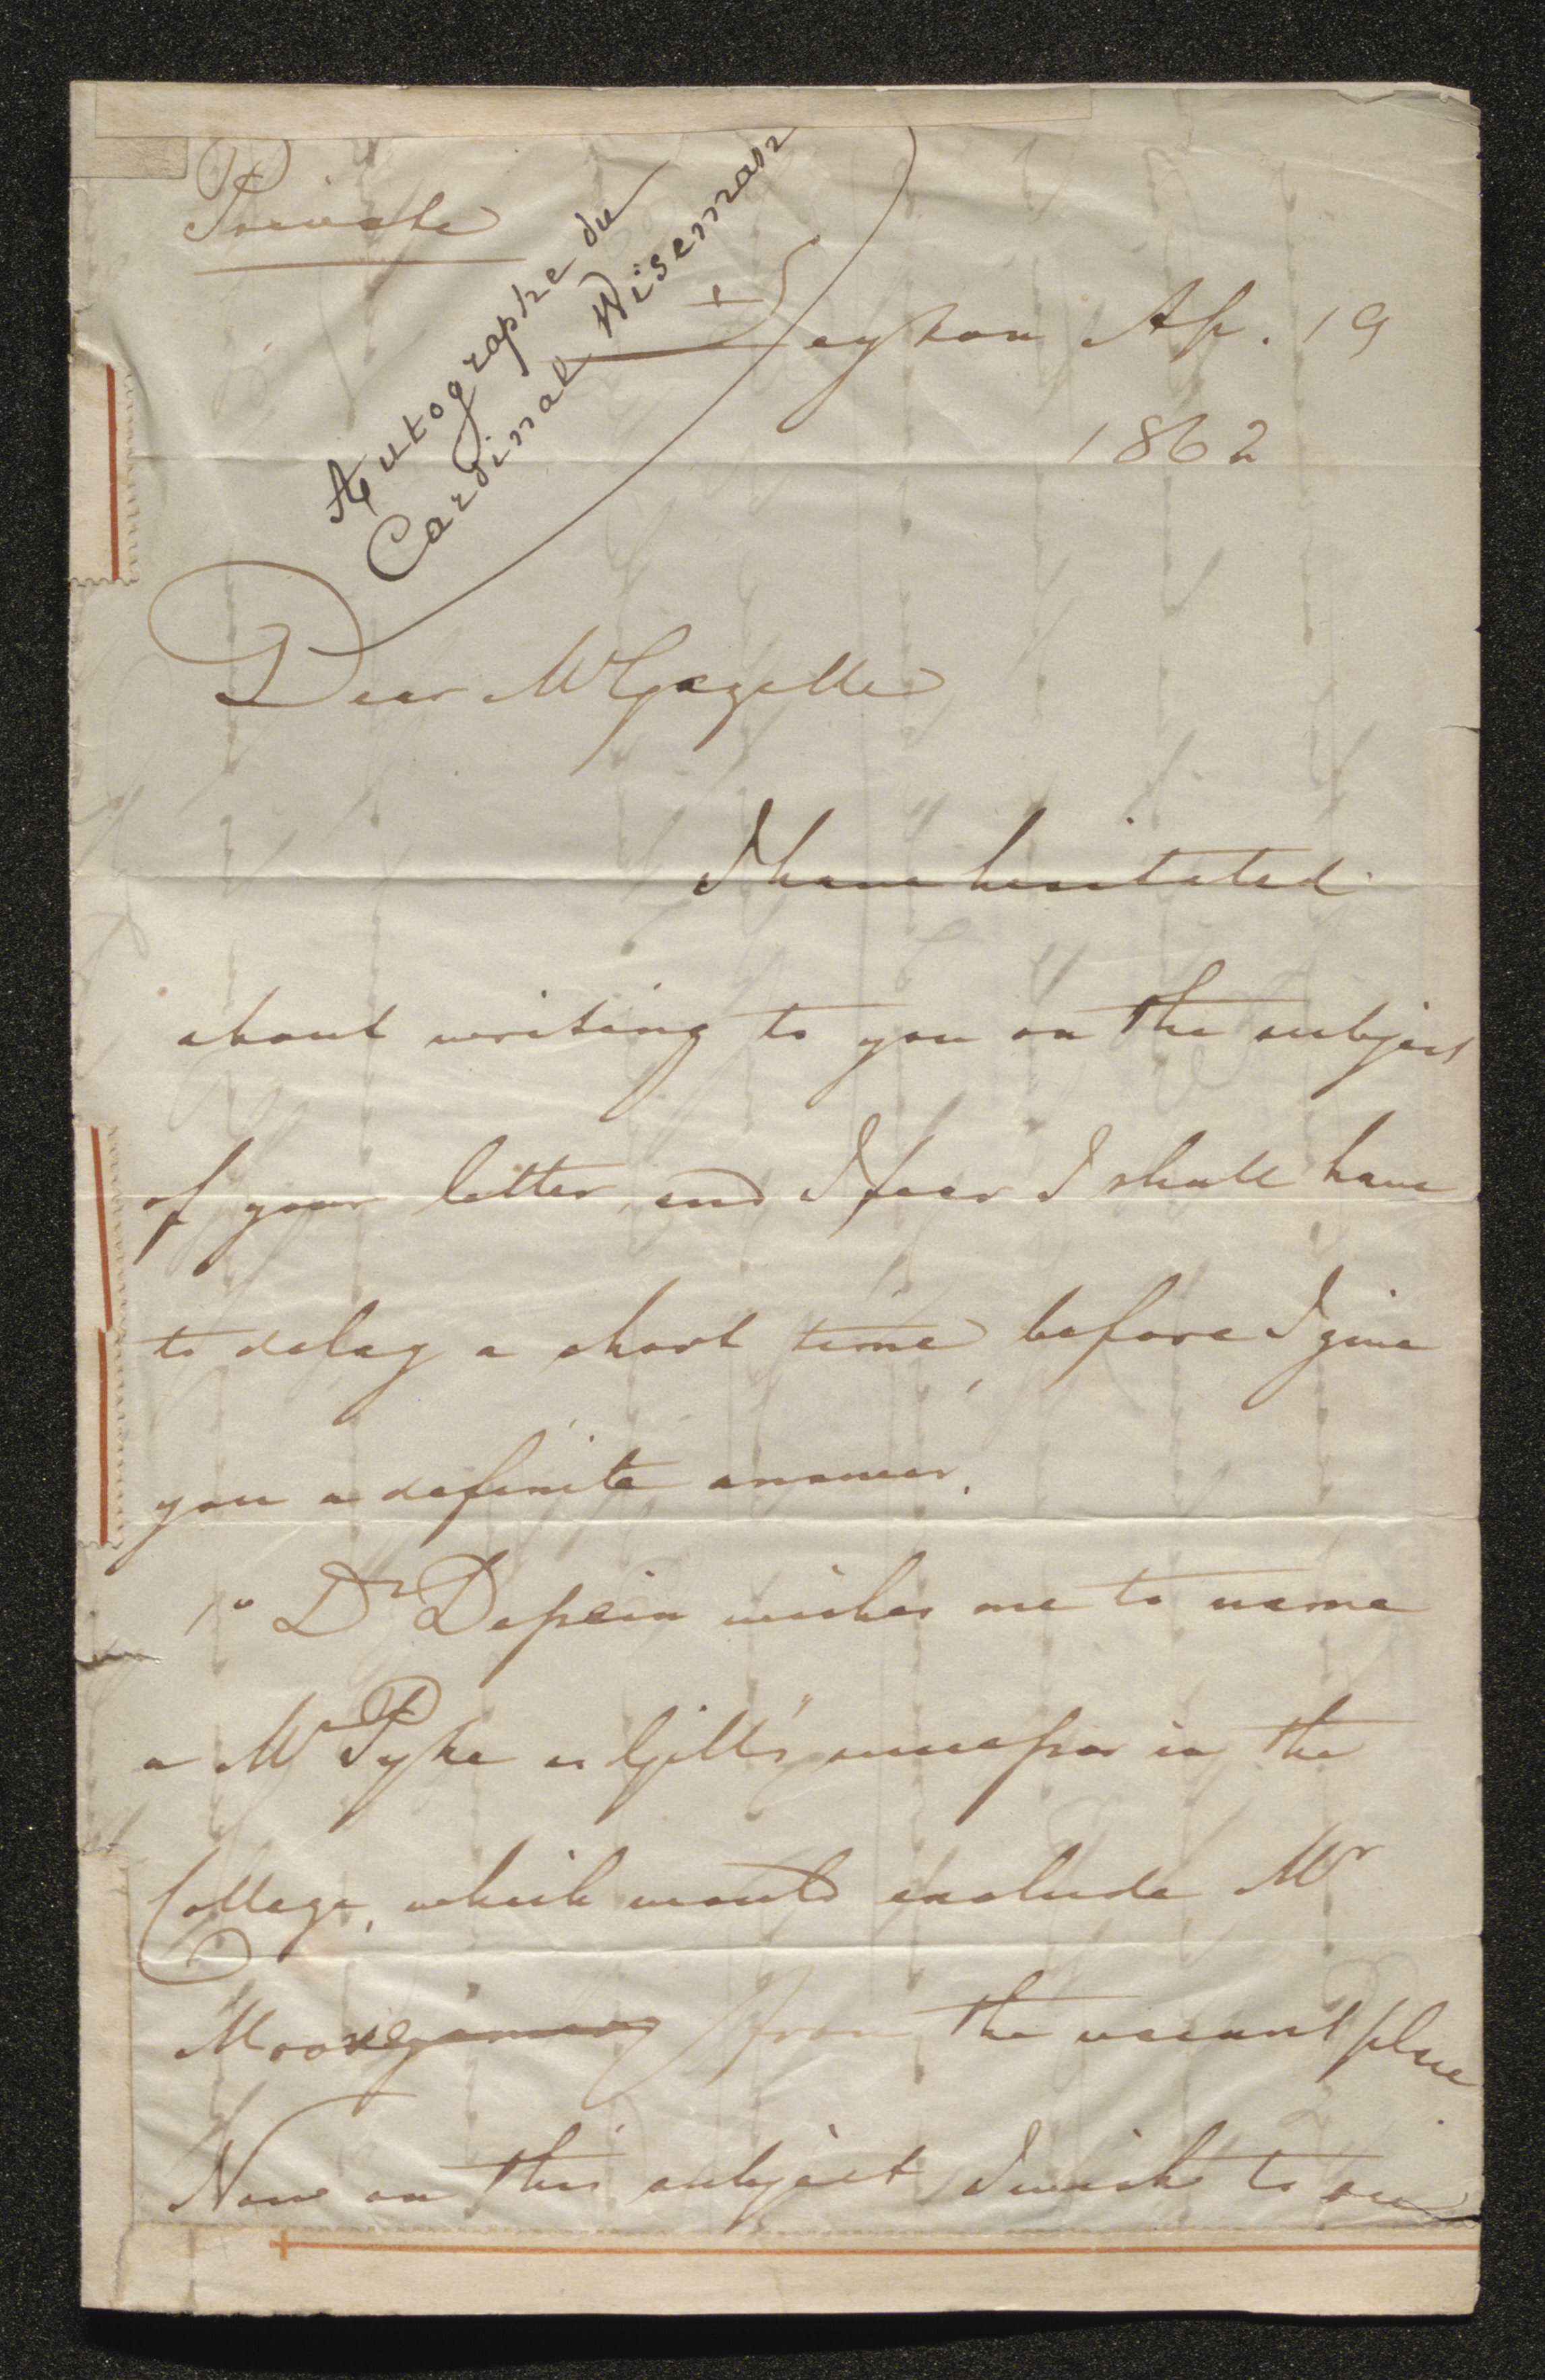 Private
Autographe du
Cardinal Wiseman
+ Leyton Ap. 19
1862
Dear Mr Gazelle
I have hesitated
about writing to you on the subject
of your letter, and I fear I shall have
to delay a short time, before I give
you a definite answer.
1o Dr wishes me to name
a Mr Pyke as Gill's successor in the
College, which would exclude Mr
Moore from the vacant place
Now on this subject I wish to